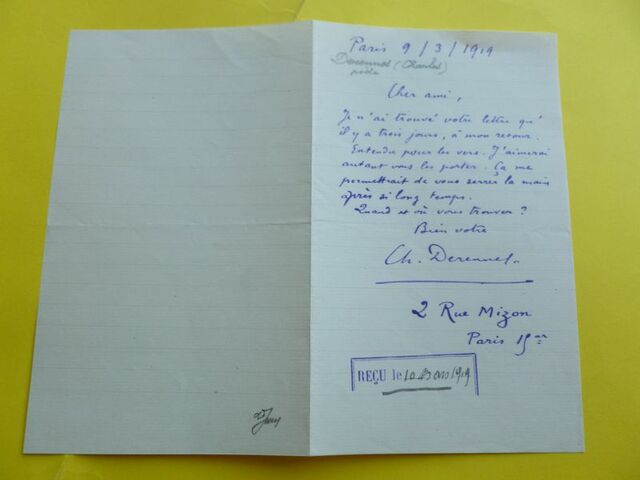 Paris 9/3/1919
Derennes (Charles)
poète
Cher ami,
Je n'ai trouvé votre lettre qu'
il y a trois jours, à mon retour.
Entendu pour les vers. J'aimerai
autant vous les porter. Ça me
permettrait de vous serrer la main
après si long temps.
Quand et où vous trouver ?
Bien votre
Ch. Derennes
2 Rue Mizon
Paris 15
REÇU le 10 Mars 1919